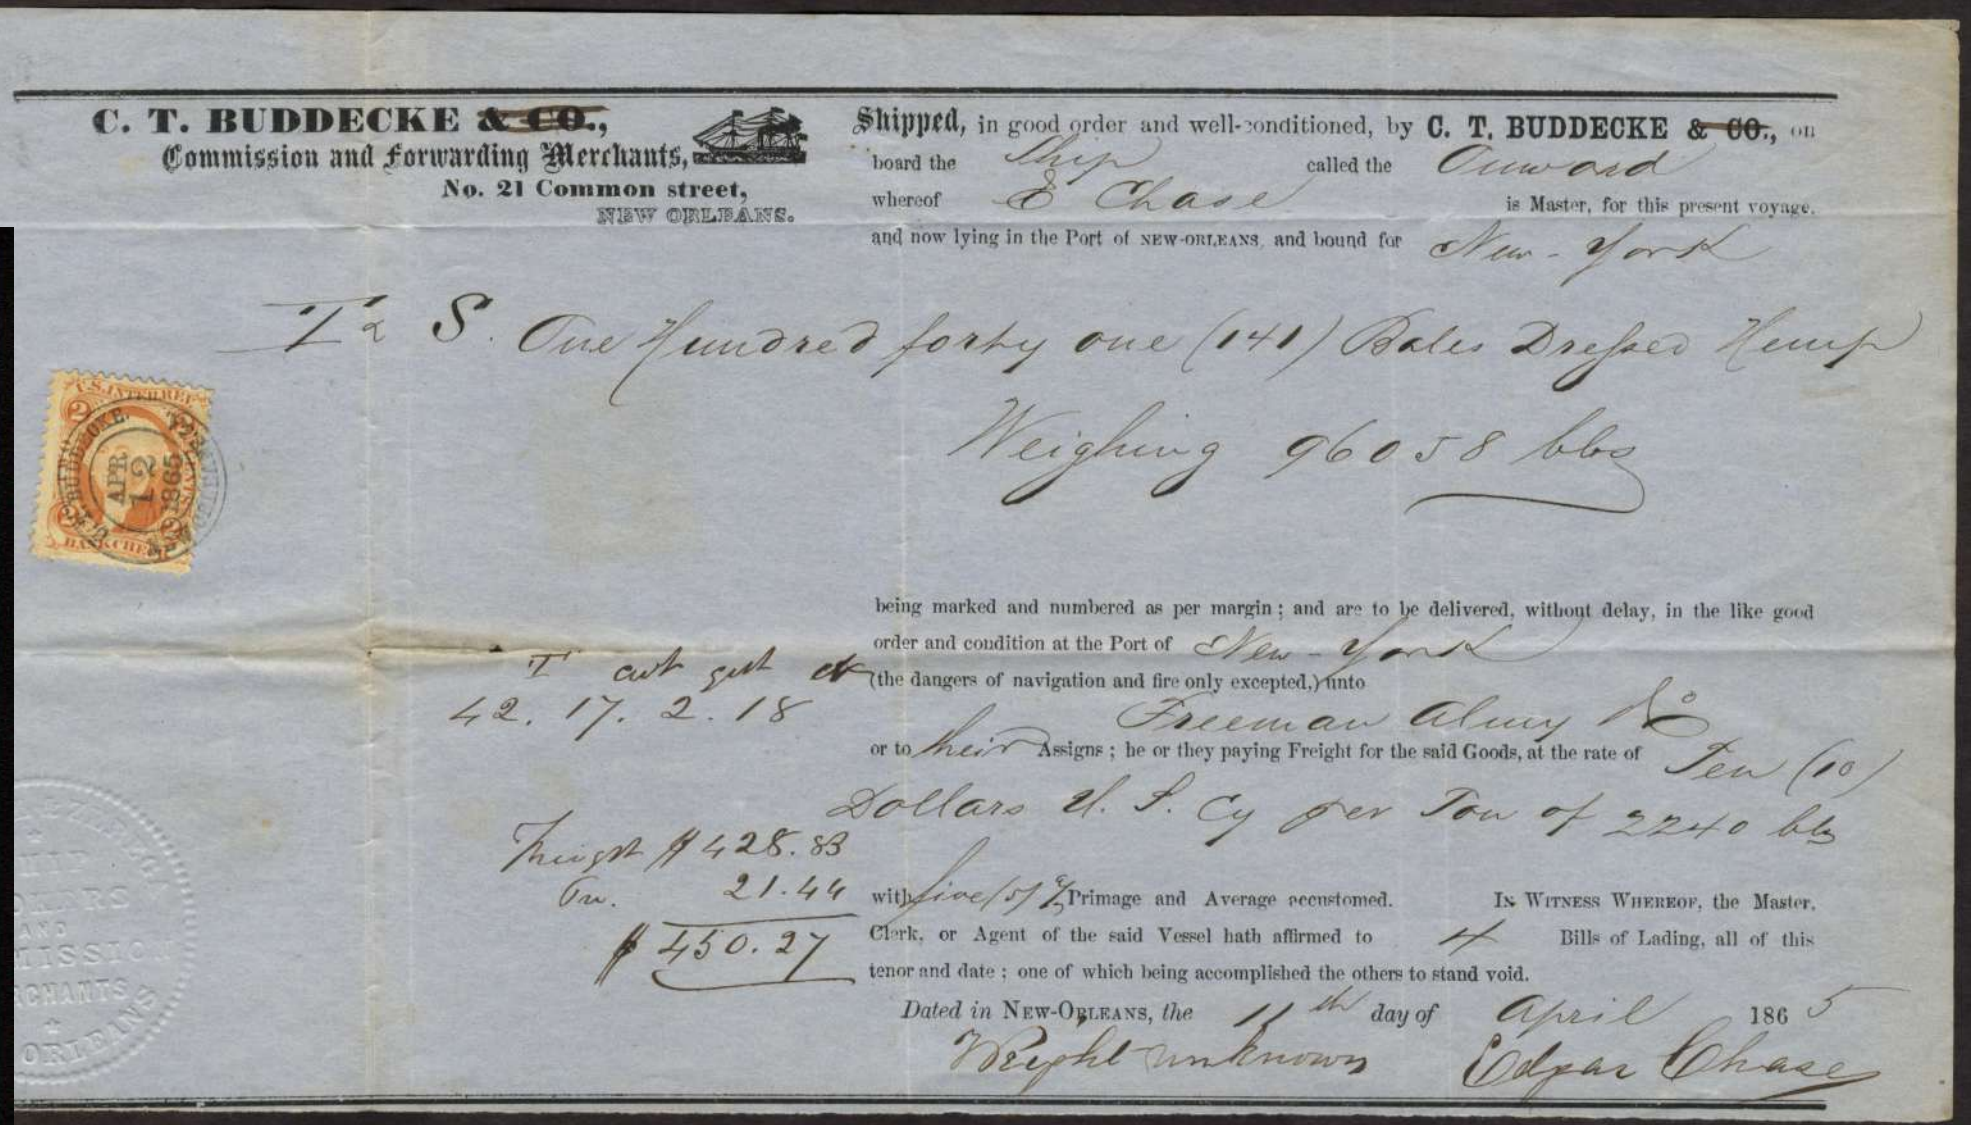 C. T. BUDDECKE & CO.,
Commission and Forwarding Merchants,
No. 21 Common street,
NEW ORLEANS.
Shipped, in good order and well-conditioned, by C. T. BUDDECKE & CO., on
board the Ship called the Onward
whereof E Chase is Master, for this present voyage,
and now lying in the Port of NEW-ORLEANS, and bound for New-York
S. One Hundred forty one (141) Bales Dressed Hemp
Weighing 96058 lbs
U.S. INTER. REV.
2 2
C. T. BUDDECKE.
APR
12
1865
NEW ORLEANS
2 2
BANK CHECK
being marked and numbered as per margin; and are to be delivered, without delay, in the like good
order and condition at the Port of New-York
(the dangers of navigation and fire only excepted,) unto
T cwt
42. 17. 2. 18
Freeman Almy & Co
or to their Assigns; he or they paying Freight for the said Goods, at the rate of Ten (10)
Dollars U. S. Cy per Ton of 2240 lbs
Freight $428.83
Pr. 21.44
$450.27
with five (5) % Primage and Average accustomed. IN WITNESS WHEREOF, the Master,
Clerk, or Agent of the said Vessel hath affirmed to 4 Bills of Lading, all of this
tenor and date; one of which being accomplished the others to stand void.
Dated in NEW-ORLEANS, the 11th day of April 1865
Weight unknown Edgar Chase
SHIP
BROKERS
AND
COMMISSION
MERCHANTS
ORLEANS